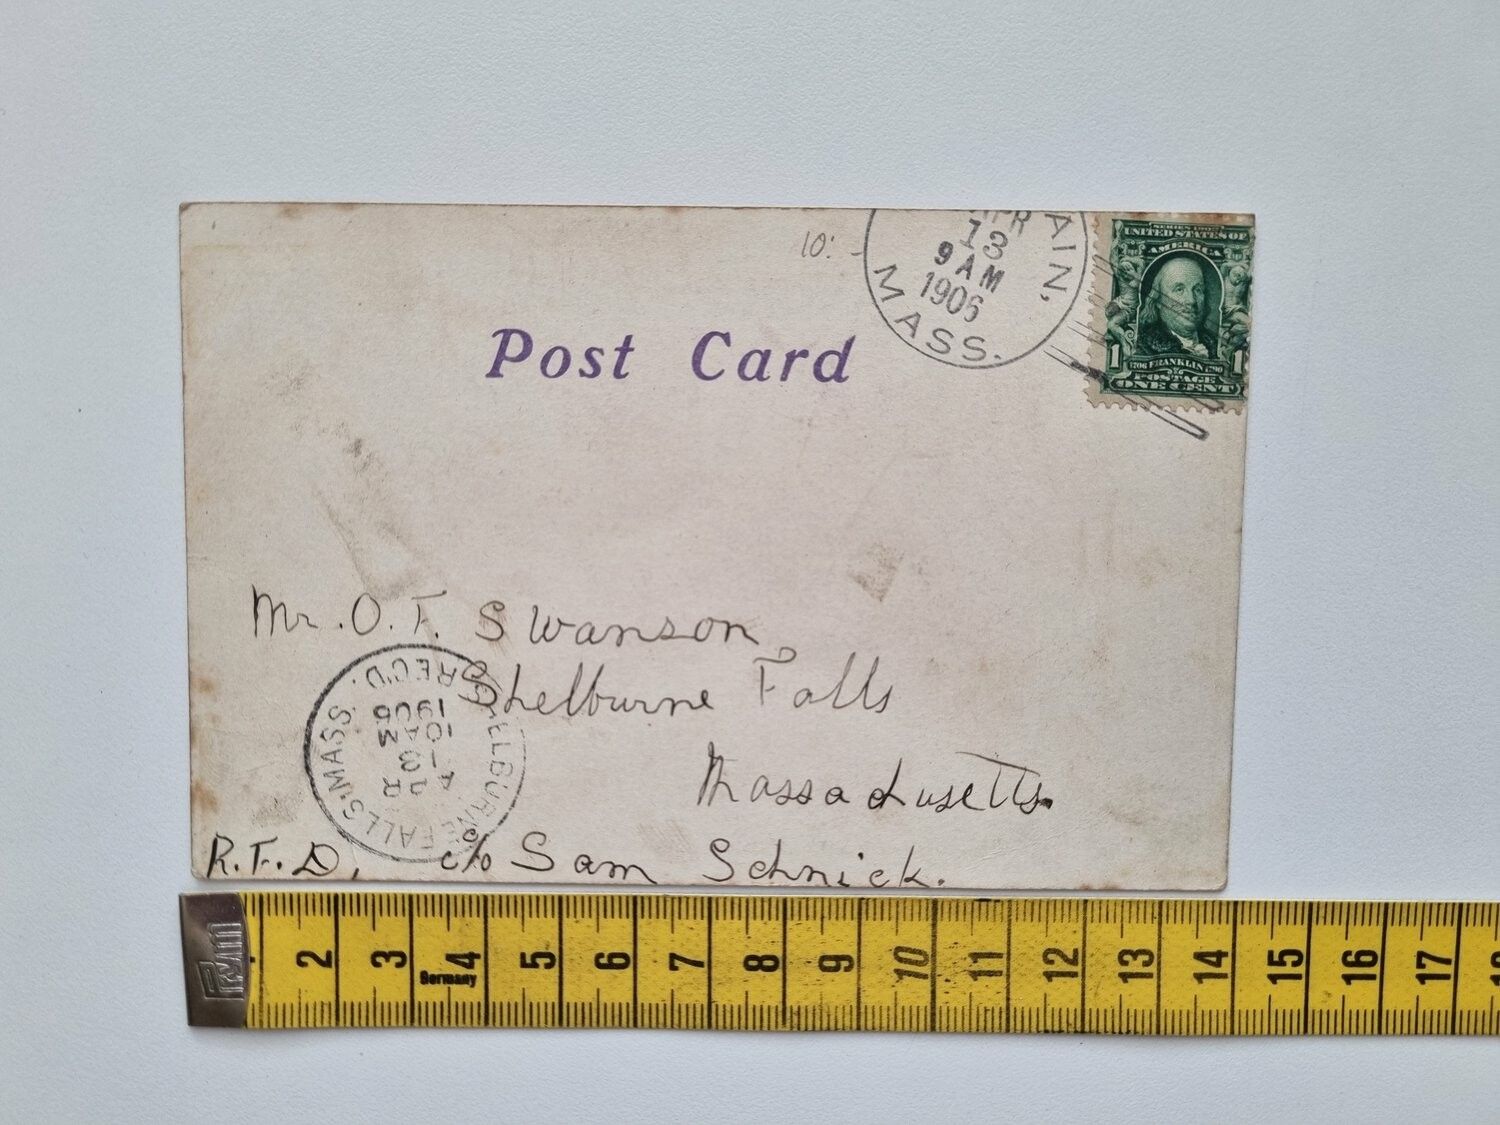 10:
APR
13
9 AM
1906
AIN, MASS.
SERIES 1902
UNITED STATES OF
AMERICA
1 1706 FRANKLIN 1790 1
POSTAGE
ONE CENT
Post Card
Mr. O. T. Swanson
Shelburne Falls
Massachusetts.
R.F.D, c/o Sam Schnick.
SHELBURNE FALLS MASS. REC'D.
APR
13
10 AM
1906
Prym
2 3 4 5 6 7 8 9 10 11 12 13 14 15 16 17
Germany